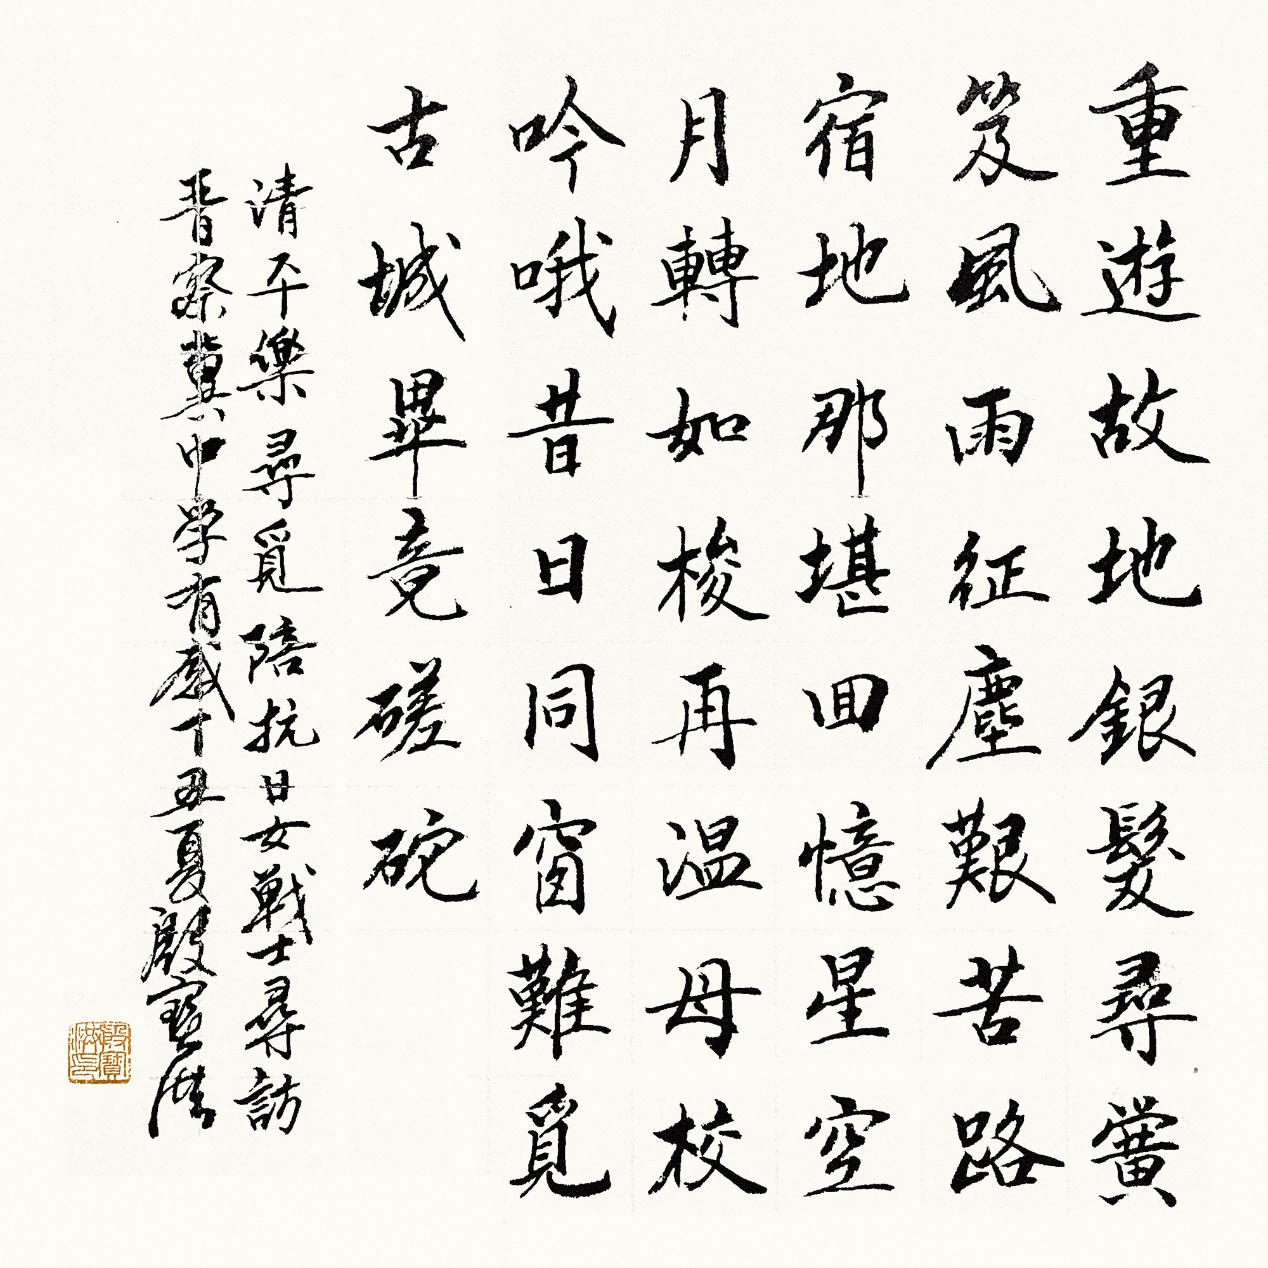 重遊故地銀髮尋黌
笈風雨征塵艱苦路
宿地那堪回憶星空
月轉如梭再温母校
吟哦昔日同窗難覓
古城畢竟磋砣
清平樂尋覓陪抗日女戰士尋訪
晋察冀中学有感丁丑夏殷寶洪